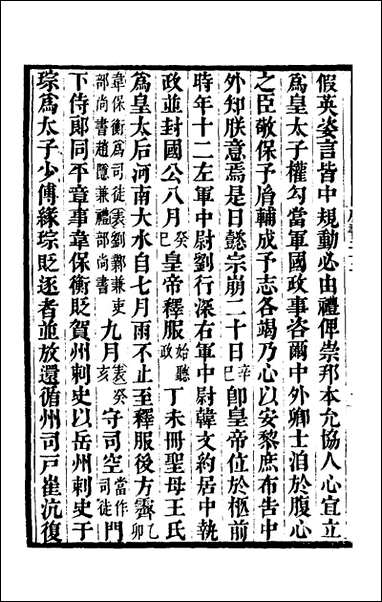 假英姿言皆中規動必由禮俾崇邦本允協人心宜立
爲皇太子權勾當軍國政事咨爾中外卿士洎於腹心
之臣敬保予胤輔成予志各竭乃心以安黎庶布告中
外知朕意焉是日懿宗崩二十日辛巳卽皇帝位於柩前
時年十二左軍中尉劉行深右軍中尉韓文約居中執
政並封國公八月癸巳皇帝釋服始聽政丁未冊聖母王氏
爲皇太后河南大水自七月雨不止至釋服後方霽乙卯
韋保衡爲司徒表劉鄴兼吏部尚書趙隱兼禮部尚書九月表癸亥守司空當作司徒門
下侍郞同平章事韋保衡貶賀州刺史以岳州刺史于
琮爲太子少傅緣琮貶逐者並放還循州司戶崔沆復